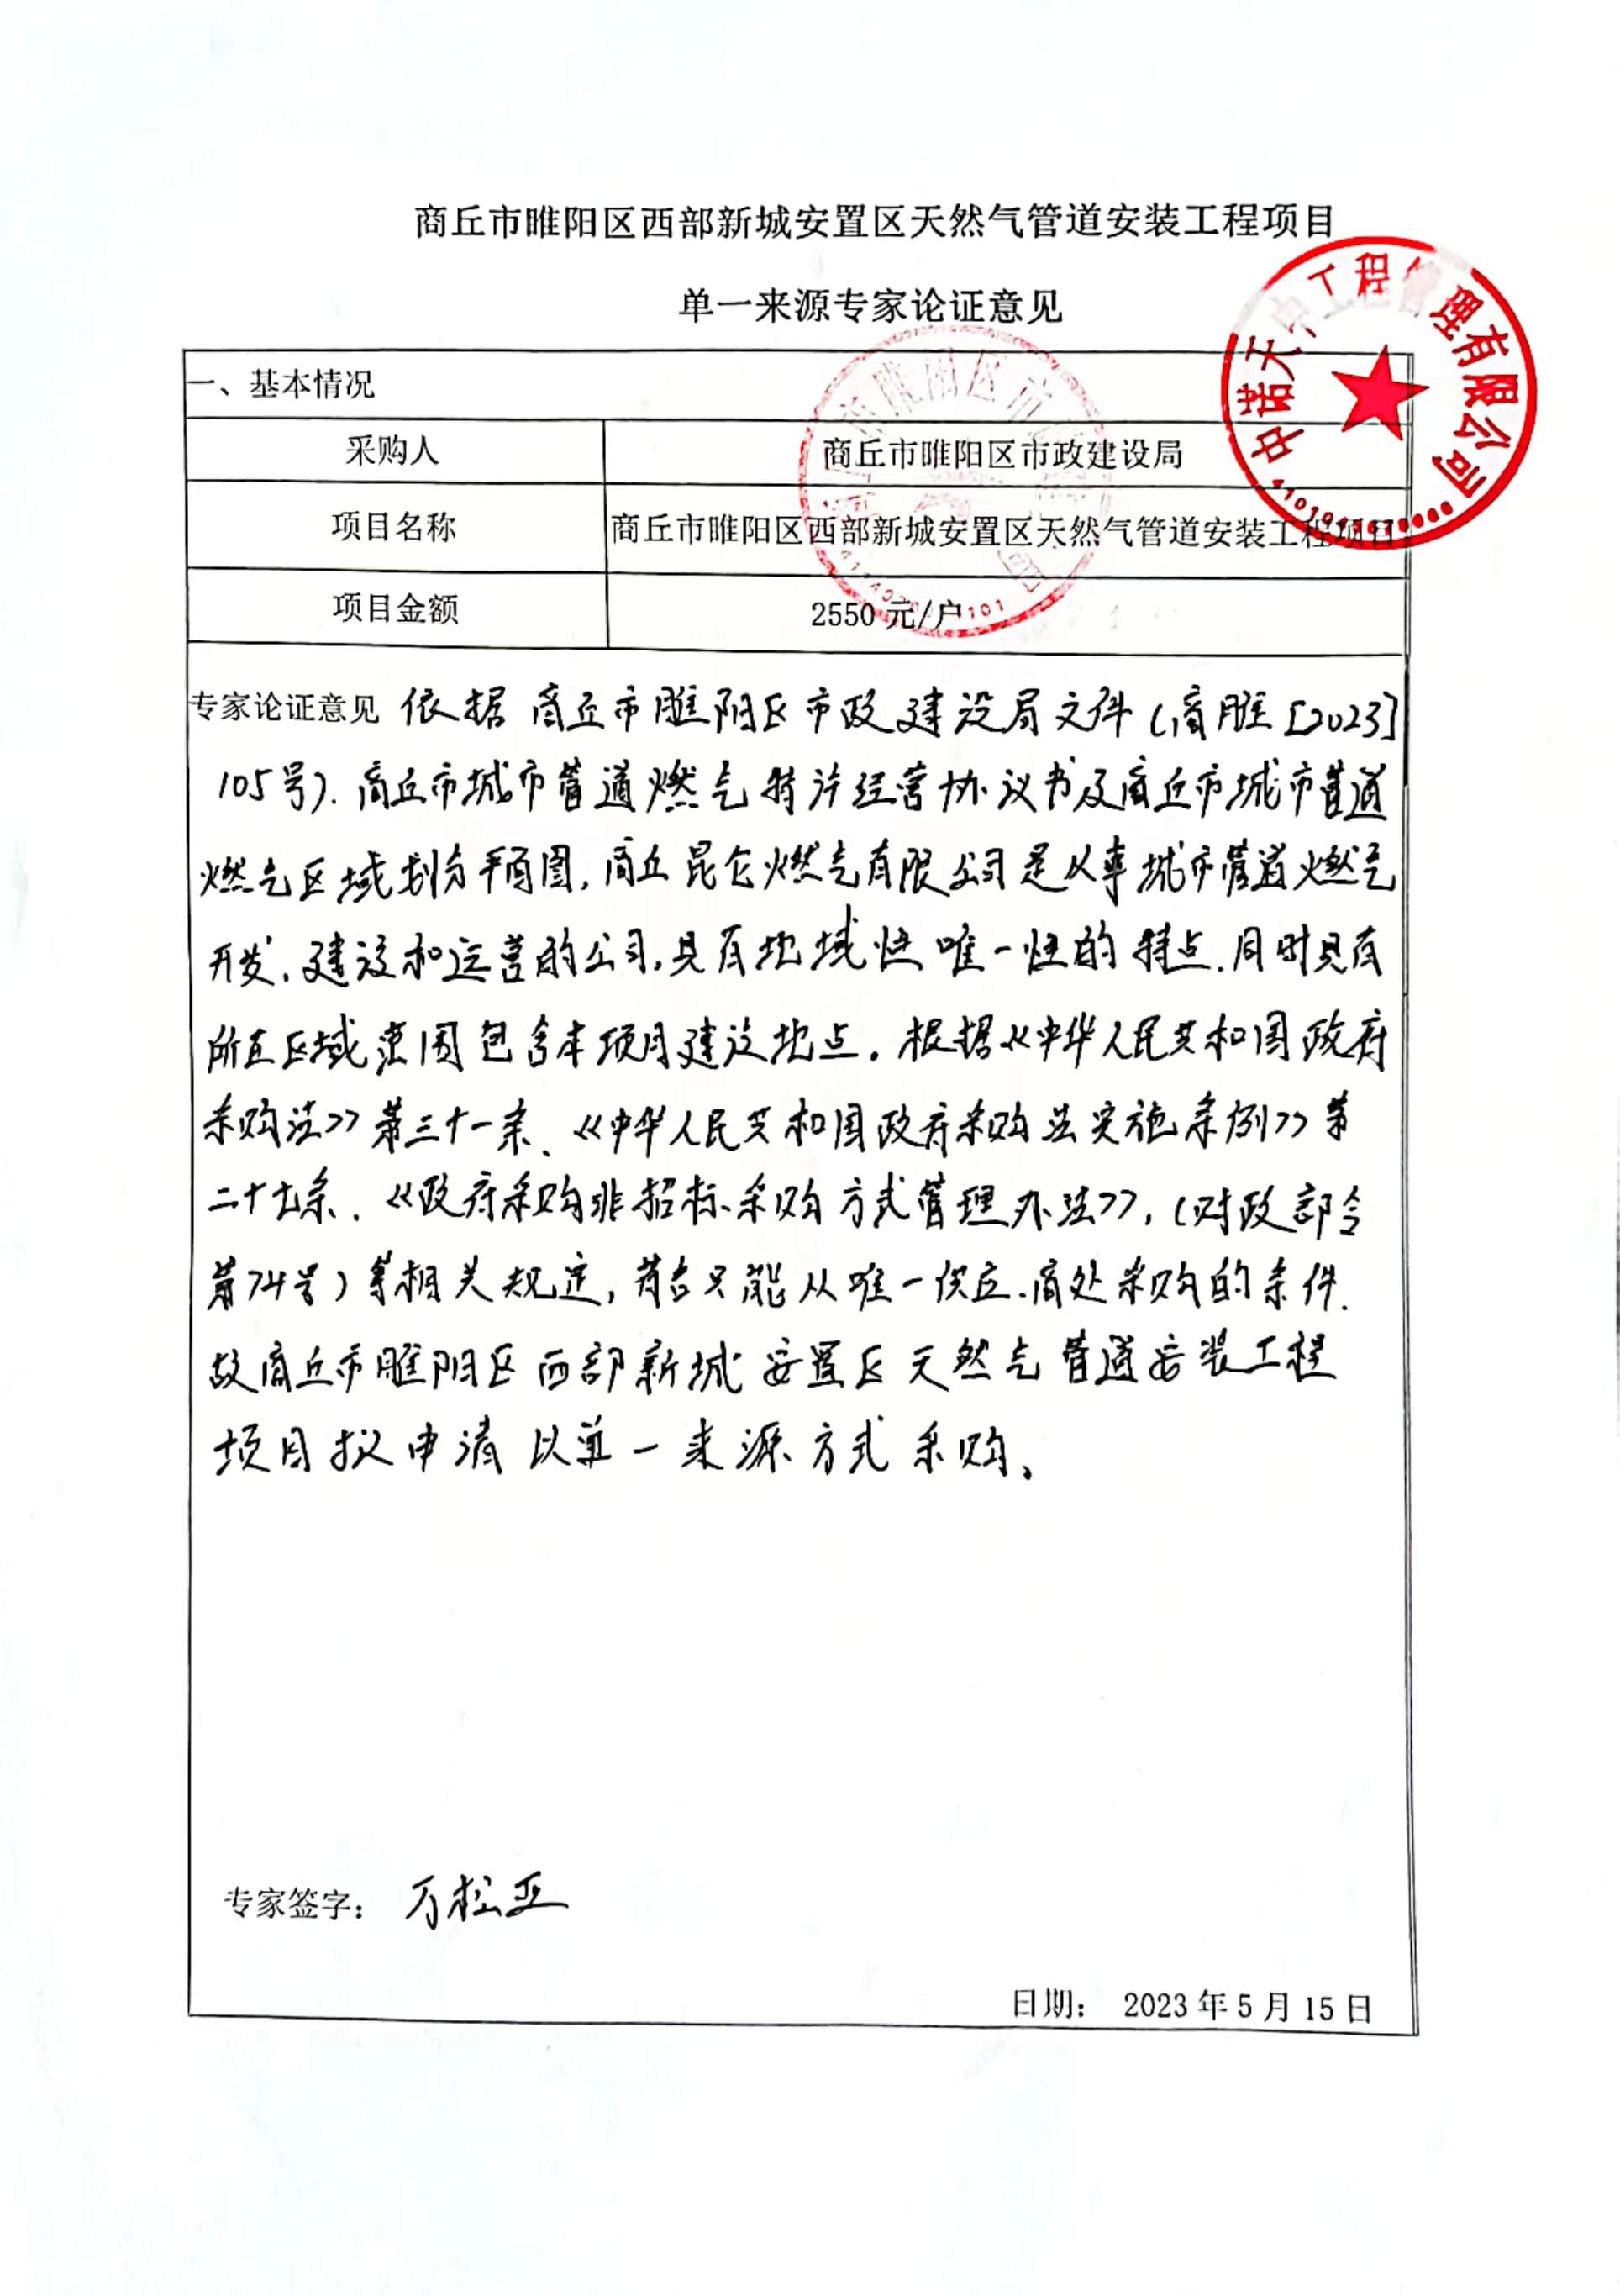 商丘市睢阳区西部新城安置区天然气管道安装工程项目
单一来源专家论证意见
中诺天 工程管理有限公司
一、基本情况
采购人 商丘市睢阳区市政建设局
项目名称 商丘市睢阳区西部新城安置区天然气管道安装工程项目
项目金额 2550元/户
专家论证意见 依据商丘市睢阳区市政建设局文件(商睢[2023]
105号).商丘市城市管道燃气特许经营协议书及商丘市城市管道
燃气区域划分平面图,商丘昆仑燃气有限公司是从事城市管道燃气
开发、建设和运营的公司,具有地域性唯一性的特点.同时具有
所在区域范围包含本项目建设地点。根据《中华人民共和国政府
采购法》第三十一条、《中华人民共和国政府采购法实施条例》第
二十七条、《政府采购非招标采购方式管理办法》,(财政部令
第74号)等相关规定,符合只能从唯一供应商处采购的条件.
故商丘市睢阳区西部新城安置区天然气管道安装工程
项目拟申请以单一来源方式采购、
专家签字: 万松正
日期: 2023年5月15日